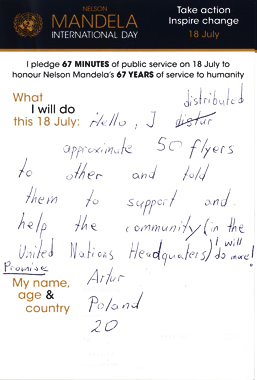 NELSON
MANDELA
INTERNATIONAL DAY
Take action
Inspire change
18 July
I pledge 67 MINUTES of public service on 18 July to
honour Nelson Mandela's 67 YEARS of service to humanity
What
I will do
this 18 July:
distributed
Hello, I distur
approximate 50 flyers
to other and told
them to support and
help the community (in the
United Nations Headquaters) I will
do more!
Promise
My name,
age &
country
Artur
Poland
20